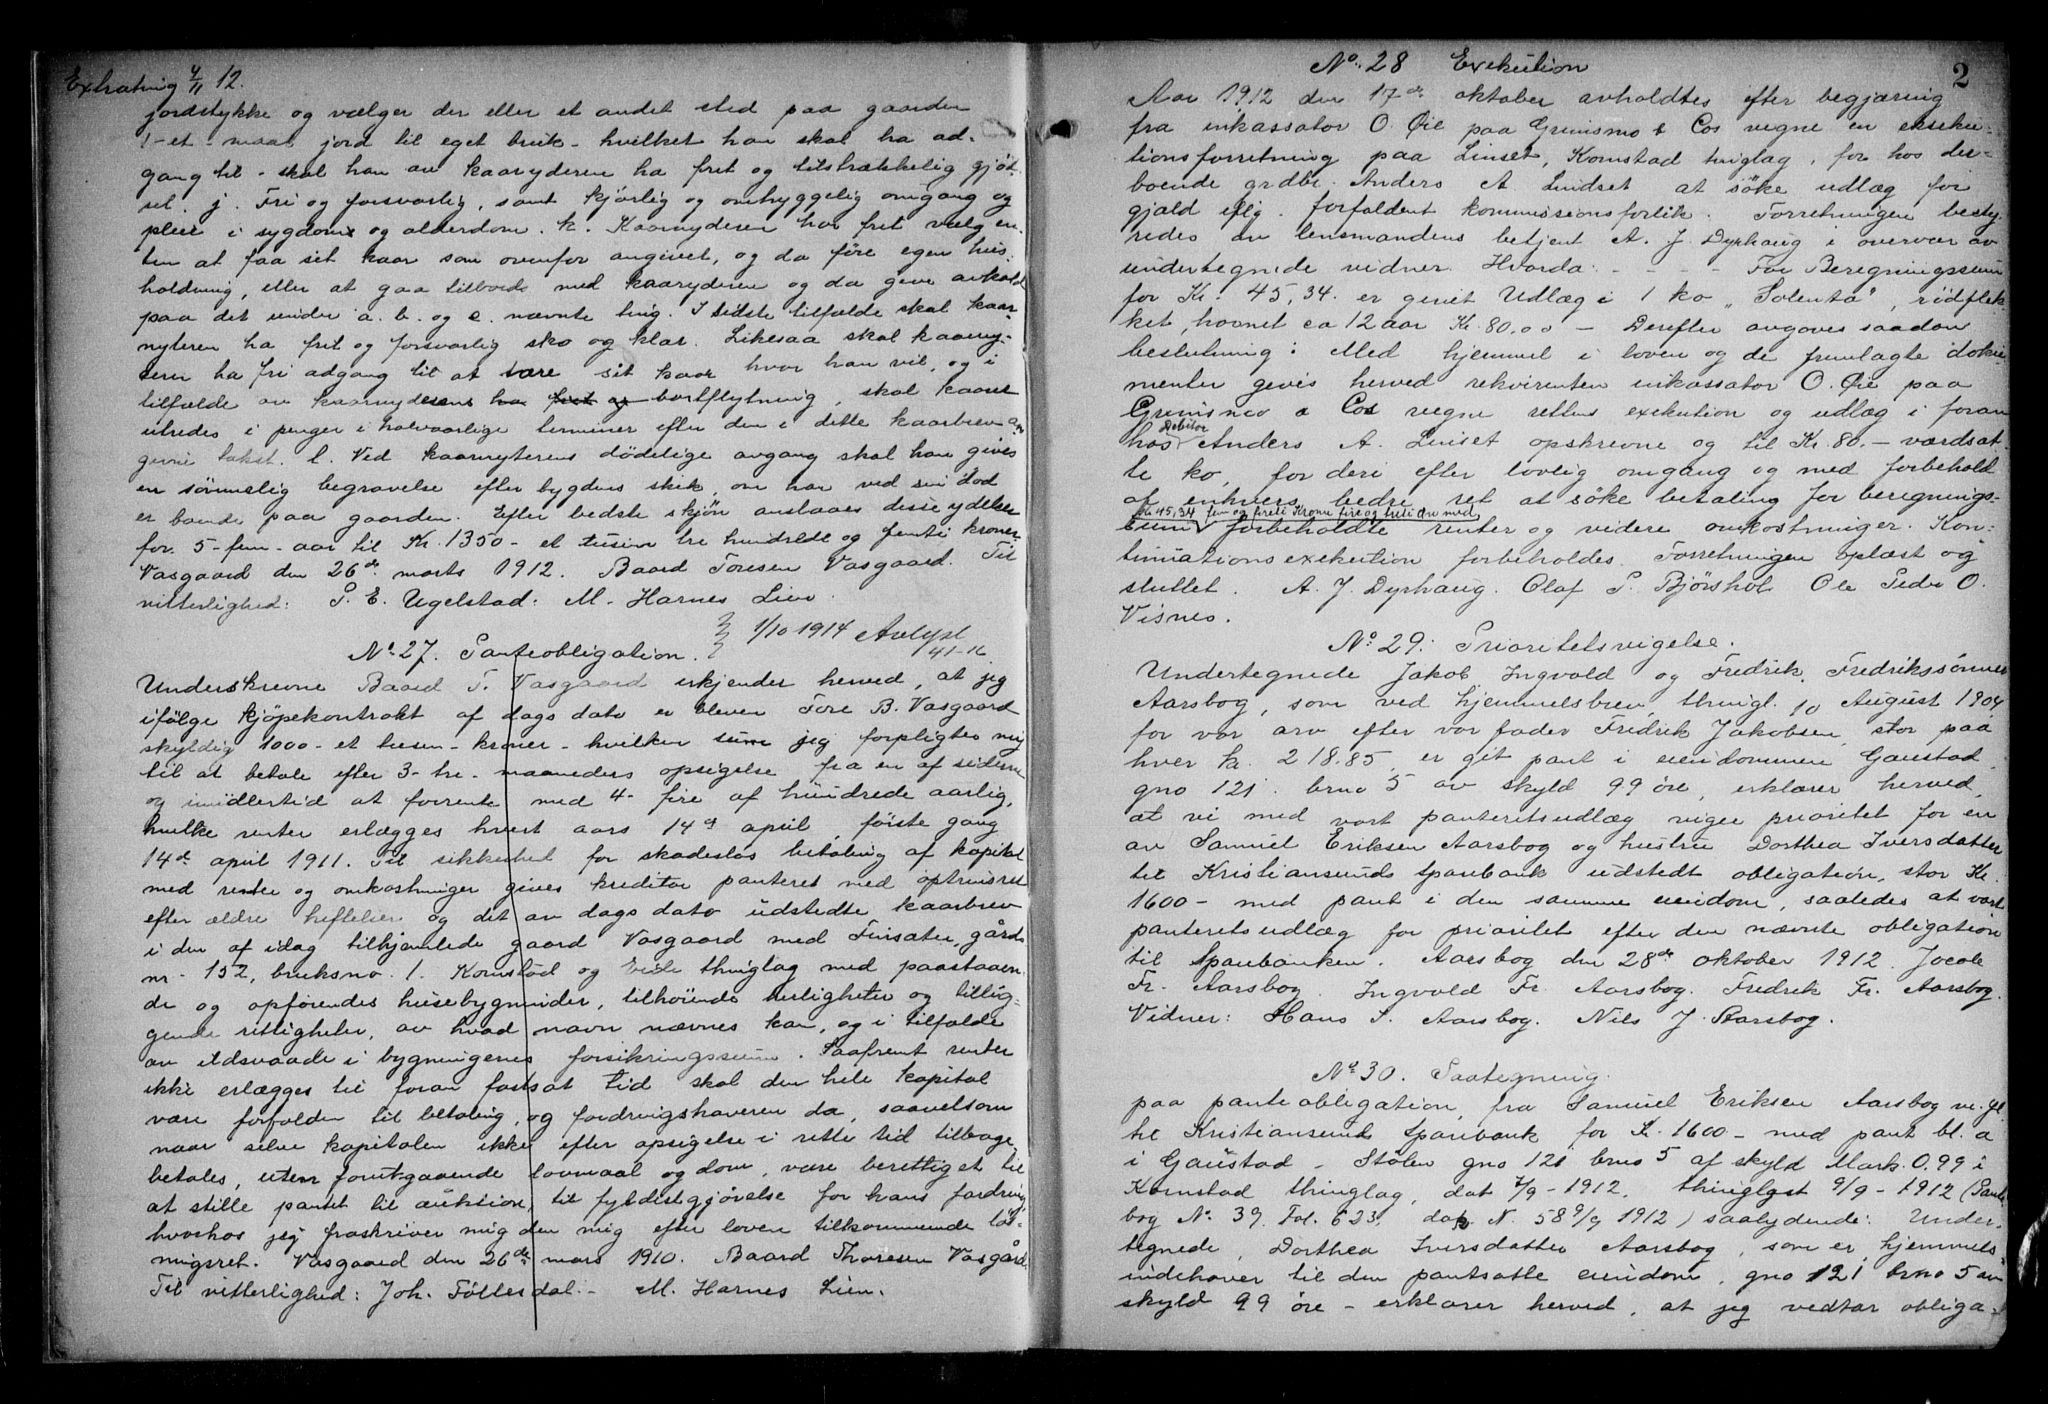 Extrating 4/11 12.
jordstykke og vælger der eller et andet sted paa gaarden
1-et-maal jord til eget bruk - hvilket han skal ha ad-
gang til - skal han av kaaryderen ha frit og tilstrækkelig gjöd-
sel. j. Fri og forsvarlig, samt kjærlig og omhyggelig omgang og
pleie i sygdom og alderdom. k. Kaarnyderen har frit valg en-
ten at faa sit kaar som ovenfor angivet, og da före egen hus-
holdning, eller at gaa tilbords med kaaryderen og da give avkald
paa det under a. b. og c. nævnte ting. I sidste tilfælde skal kaar-
nyteren ha frit og forsvarlig sko og klær. Likesaa skal kaarny-
teren ha fri adgang til at tære sit kaar hvor han vil, og i
tilfælde av kaarnyderens ha frit og bortflytning, skal kaaret
utredes i penger i halvaarlige terminer efter den i dette kaarbrev an-
givne takst. l. Ved kaarnyterens dödelige avgang skal han gives
en sömmelig begravelse efter bygdens skik, om han ved sin död
er boende paa gaarden. Efter bedste skjön ansłaaes disse ydelser
for 5-fem-aar til Kr. 1350- et tusin tre hundrede og femti kroner.
Vasgaard den 26de marts 1912. Baard Toresen Vasgaard. Til
vitterlighed: P. E. Ugelstad. M. Harnes Lien.
1/10 1914 Avlyst
41-16
No 27. Panteobligation.
Underskrevne Baard T. Vasgaard erkjender herved, at jeg
ifölge kjöpekontrakt af dags dato er bleven Tore B. Vasgaard
skyldig 1000 - et tusen - kroner - hvilken sum jeg forpligter mig
til at betale efter 3-tre-maaneders opsigelse fra en af siderne
og imidlertid at forrente med 4- fire af hundrede aarlig,
hvilke renter erlægges hvert aars 14de april, förste gang
14de april 1911. Til sikkerhed for skadeslös betaling af kapital
med renter og omkostninger gives kreditor panteret med optrinsret
efter ældre heftelser og det av dags dato udstedte kaarbrev
i den af idag tilhjemlede gaard Vasgaard med Finsæter, gårds
nr. 152, bruksno. 1. Kornstad og Eide thinglag med paastaaen-
de og opförendes husebygninder, tilhörende herligheter og tillig-
gende rettigheter, av hvad navn nævnes kan, og i tilfælde
av ildsvaade i bygningenes forsikringssum. Saafremt renter
ikke erlægges til foran fastsat tid skal den hele kapital
være forfalden til betaling, og fordringshaveren da, saavelsom
naar selve kapitalen ikke efter opsigelse i rette tid tilbage
betales, uten forutgaaende lovmaal og dom, være berettiget til
at stille pantet til auktion til fyldestgjörelse for hans fordring,
hvorhos jeg fraskriver mig den mig efter loven tilkommende lös-
ningsret. Vasgaard den 26de mars 1910. Baard Thoresen Vasgård.
Til vitterlighed: Joh. Föllesdal. - M. Harnes Lien.
2
No 28 Exekution
Aar 1912 den 17de oktober avholdtes efter begjæring
fra inkassator O. Öie paa Grimsmo & Cos vegne en eksekü-
tionsforretning paa Linset, Kornstad tinglag, for hos der-
boende grdbr. Anders A. Lindset at söke udlæg for
gjæld iflg. forfaldent kommissionsforlik. Forretningen besty-
redes av lensmandens betjent A. J. Dyrhaug i overvær av
undertegnede vidner. Hvorda - - - - For Beregningssum
for Kr. 45,34. er givet Udlæg i 1 ko „Solenta", rödflek-
ket, hornet ca 12 aar Kr. 80.00 - Derefter avgaves saadan
beslutning: Med hjemmel i loven og de fremlagte doku-
menter gives herved rekvirenten inkassator O. Öie paa
Grimsmo & Cos vegne rettens exekution og udlæg i foran
hos Debitor Anders A. Linset opskrevne og til Kr. 80.- værdsat-
te ko, for deri efter lovlig omgang og med forbehold
af enhvers bedre ret at söke betaling for beregnings-
sum Kr 45,34 fem og firti Kroner fire og treti öre med forbeholdte renter og videre omkostninger. Kon-
tinuationsexekution forbeholdes. Forretningen oplæst og
sluttet. A. J. Dyrhaug. Olaf P. Bjørshol. Ole Peder O.
Visnes.
No 29. Prioritetsvigelse.
Undertegnede Jakob, Ingvald og Fredrik, Fredrikssönner
Aarsbog, som ved hjemmelsbrev, thingl. 10 August 1904
for vor arv efter vor fader Fredrik Jakobsen, stor paa
hver kr. 218.85, er git pant i eiendommen Gaustad
gno 121. brno 5 av skyld 99 öre, erklærer herved,
at vi med vort panteretsudlæg viger prioritet for en
av Samuel Eriksen Aarsbog og hustru Dorthea Iversdatter
til Kristiansunds Sparebank udstedt obligation, stor Kr.
1600- med pant i den samme eiendom, saaledes at vort
panteretsudlæg for prioritet efter den nævnte obligation
til Sparebanken. Aarsbog den 28de oktober 1912. Jacob
Fr. Aarsbog. Ingvald Fr. Aarsbog. Fredrik Fr. Aarsbog.
Vidner: Hans S. Aarsbog. Nils J. Aarsbog.
No 30. Paategning
paa panteobligation fra Samuel Eriksen Aarsbog
til Kristiansunds Sparebank for Kr. 1600- med pant bl. a
i Gaustad - Stölen gno 121 brno 5 af skyld Mark. 0.99 i
Kornstad thinglag, dat 7/9-1912. thinglyst 9/9-1912 (Pante-
bog No 39. Fol. 623, N. 58 9/9 1912) saalydende: Under-
tegnede, Dorthea Iversdatter Aarsbog, som er hjemmels-
indehaver til den pantsatte eiendom, gno 121 brno 5 av
skyld 99 öre - erklærer herved, at jeg vedtar obliga-